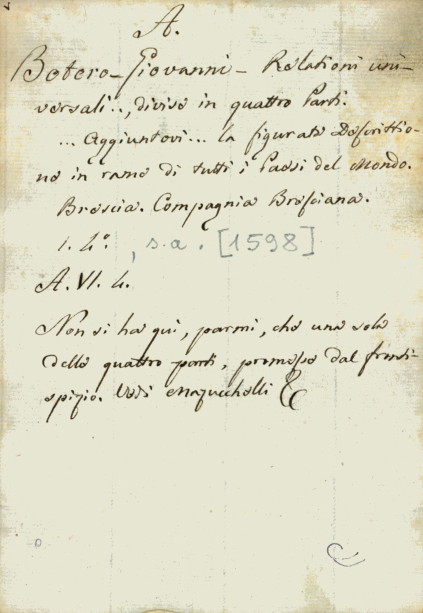 A.
Botero - Giovanni - Relationi uni-
versali..., divise in quattro Parti.
... Aggiuntovi... la figurata Descrittio-
ne in rame di tutti i Paesi del Mondo.
Brescia. Compagnia Bresciana.
1. 4.° , s.a. [1598]
A. VI. 4.
Non si ha qui, parmi, che una sola
delle quattro parti, promesse dal fronti-
spizio. Vedi Mazzuchelli